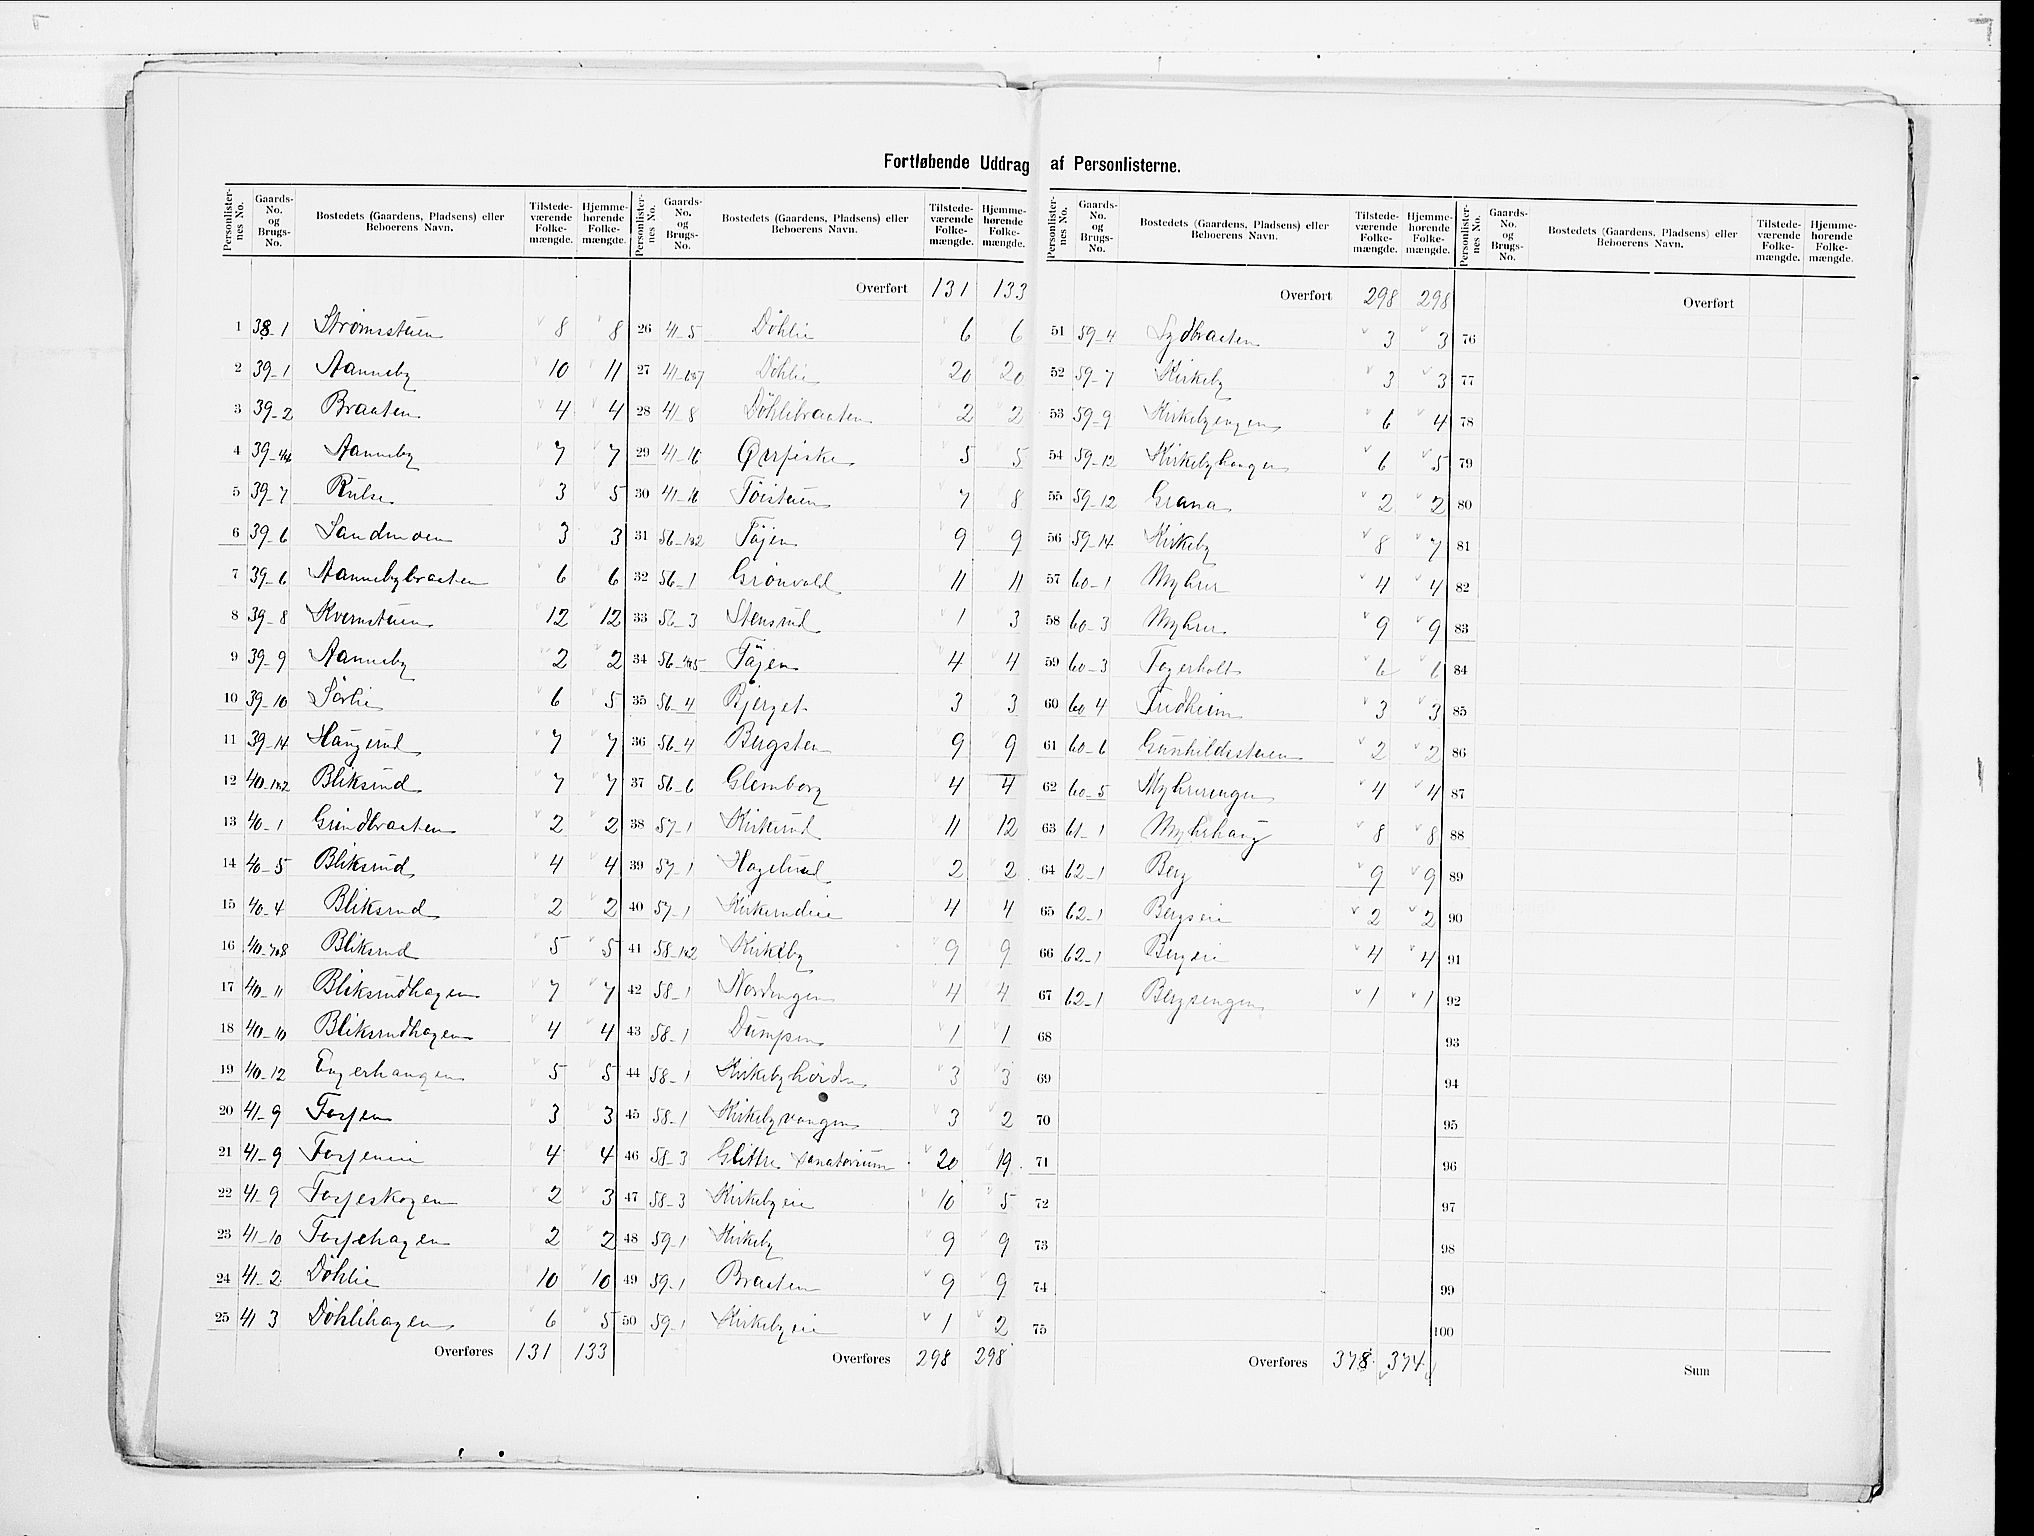 Fortløbende Uddrag af Personlisterne.
Personlister-nes No. Gaards-No. og Brugs-No. Bostedets (Gaardens, Pladsens) eller Beboerens Navn. Tilstede-værende Folke-mængde. Hjemme-hørende Folke-mængde.
1 38-1 Strømsstuen 8 8
2 39-1 Aanneby 10 11
3 39-2 Braaten 4 4
4 39-4 Aanneby 7 7
5 39-7 Rulse 3 5
6 39-6 Sandmoen 3 3
7 39-6 Aannebybraaten 6 6
8 39-8 Kvernstuen 12 12
9 39-9 Aanneby 2 2
10 39-10 Sörlie 6 5
11 39-14 Haugerud 7 7
12 40-1&2 Bliksrud 7 7
13 40-1 Grindbraaten 2 2
14 40-5 Bliksrud 4 4
15 40-4 Bliksrud 2 2
16 40-7&8 Bliksrud 5 5
17 40-11 Bliksrudhagen 7 7
18 40-10 Bliksrudhagen 4 4
19 40-12 Engerhaugen 5 5
20 41-9 Tosjen 3 3
21 41-9 Tosjeneie 4 4
22 41-9 Tosjeskogen 2 3
23 41-10 Tosjehagen 2 2
24 41-2 Döhlie 10 10
25 41 3 Döhlihagen 6 5
Overføres 131 133
Personlister-nes No. Gaards-No. og Brugs-No. Bostedets (Gaardens, Pladsens) eller Beboerens Navn. Tilstede-værende Folke-mængde. Hjemme-hørende Folke-mængde.
Overført 131 133
26 41-5 Döhlie 6 6
27 41-6&7 Döhlie 20 20
28 41 8 Döhlibraaten 2 2
29 41-16 5 5
30 41-16 Töistuen 7 8
31 56-1&2 Töjen 9 9
32 56-1 Grönvold 11 11
33 56-3 Stensrud 1 3
34 56-4&5 Töjen 4 4
35 56-4 Bjerget 3 3
36 56-4 Bergsten 9 9
37 56-6 Glemborg 4 4
38 57-1 Kirkerud 11 12
39 57-1 Hagelund 2 2
40 57-1 Kirkerudeie 4 4
41 58-1&2 Kirkeby 9 9
42 58-1 Nordengen 4 4
43 58-1 Dumpen 1 1
44 58-1 3 3
45 58-1 Kirkebyvangen 3 2
46 58-3 Glittre Sanatorium 20 19
47 58-3 Kirkebyeie 10 5
48 59-1 Kirkeby 9 9
49 59-1 Braaten 9 9
50 59-1 Kirkebyeie 1 2
Overføres 298 298
Personlister-nes No. Gaards-No. og Brugs-No. Bostedets (Gaardens, Pladsens) eller Beboerens Navn. Tilstede-værende Folke-mængde. Hjemme-hørende Folke-mængde.
Overført 298 298
51 59-4 Sydbraaten 3 3
52 59-7 Kirkeby 3 3
53 59-9 Kirkebyengen 6 4
54 59-12 Kirkebyhaugen 6 5
55 59-12 Grana 2 2
56 59-14 Kirkeby 8 7
57 60-1 Myhrer 4 4
58 60-3 Myhrer 9 9
59 60-3 Fagerholt 6 6
60 60 4 Fredheim 3 3
61 60-6 Gunhildsstuen 2 2
62 60-5 Myhrerengen 4 4
63 61-1 Myhrhaug 8 8
64 62-1 Berg 9 9
65 62-1 Bergseie 2 2
66 62-1 Bergseie 4 4
67 62-1 Bergsengen 1 1
68
69
70
71
72
73
74
75
Overføres 378 374
Personlister-nes No. Gaards-No. og Brugs-No. Bostedets (Gaardens, Pladsens) eller Beboerens Navn. Tilstede-værende Folke-mængde. Hjemme-hørende Folke-mængde.
Overført
76
77
78
79
80
81
82
83
84
85
86
87
88
89
90
91
92
93
94
95
96
97
98
99
100
Sum